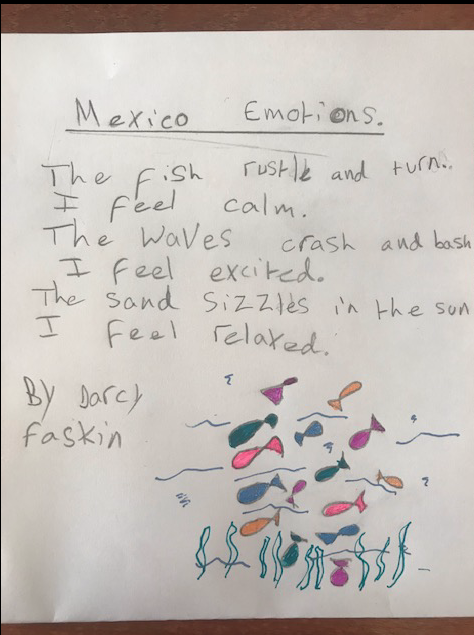 Mexico Emotions.
The fish rustle and turn..
I feel calm.
The waves crash and bash
I feel excited.
The sand sizzles in the sun
I feel relaxed.
By Darcy
Faskin